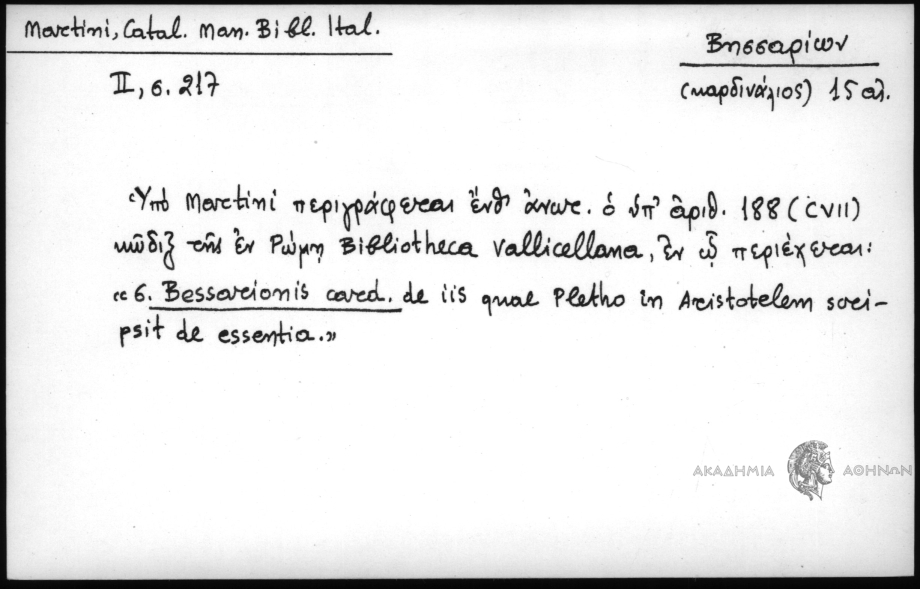 Martini, Catal. Man. Bibl. Ital.
II, σ. 217
Βησσαρίων
(καρδινάλιος) 15 αἰ.
Ὑπὸ Martini περιγράφεται ἔνθ' ἄνωτ. ὁ ὑπ' ἀριθ. 188 (CVII)
κῶδιξ τῆς ἐν Ρώμῃ Bibliotheca Vallicellana, ἐν ᾧ περιέχεται:
«6. Bessarionis card. de iis quae Pletho in Aristotelem scri-
psit de essentia.»
ΑΚΑΔΗΜΙΑ ΑΘΗΝΩΝ